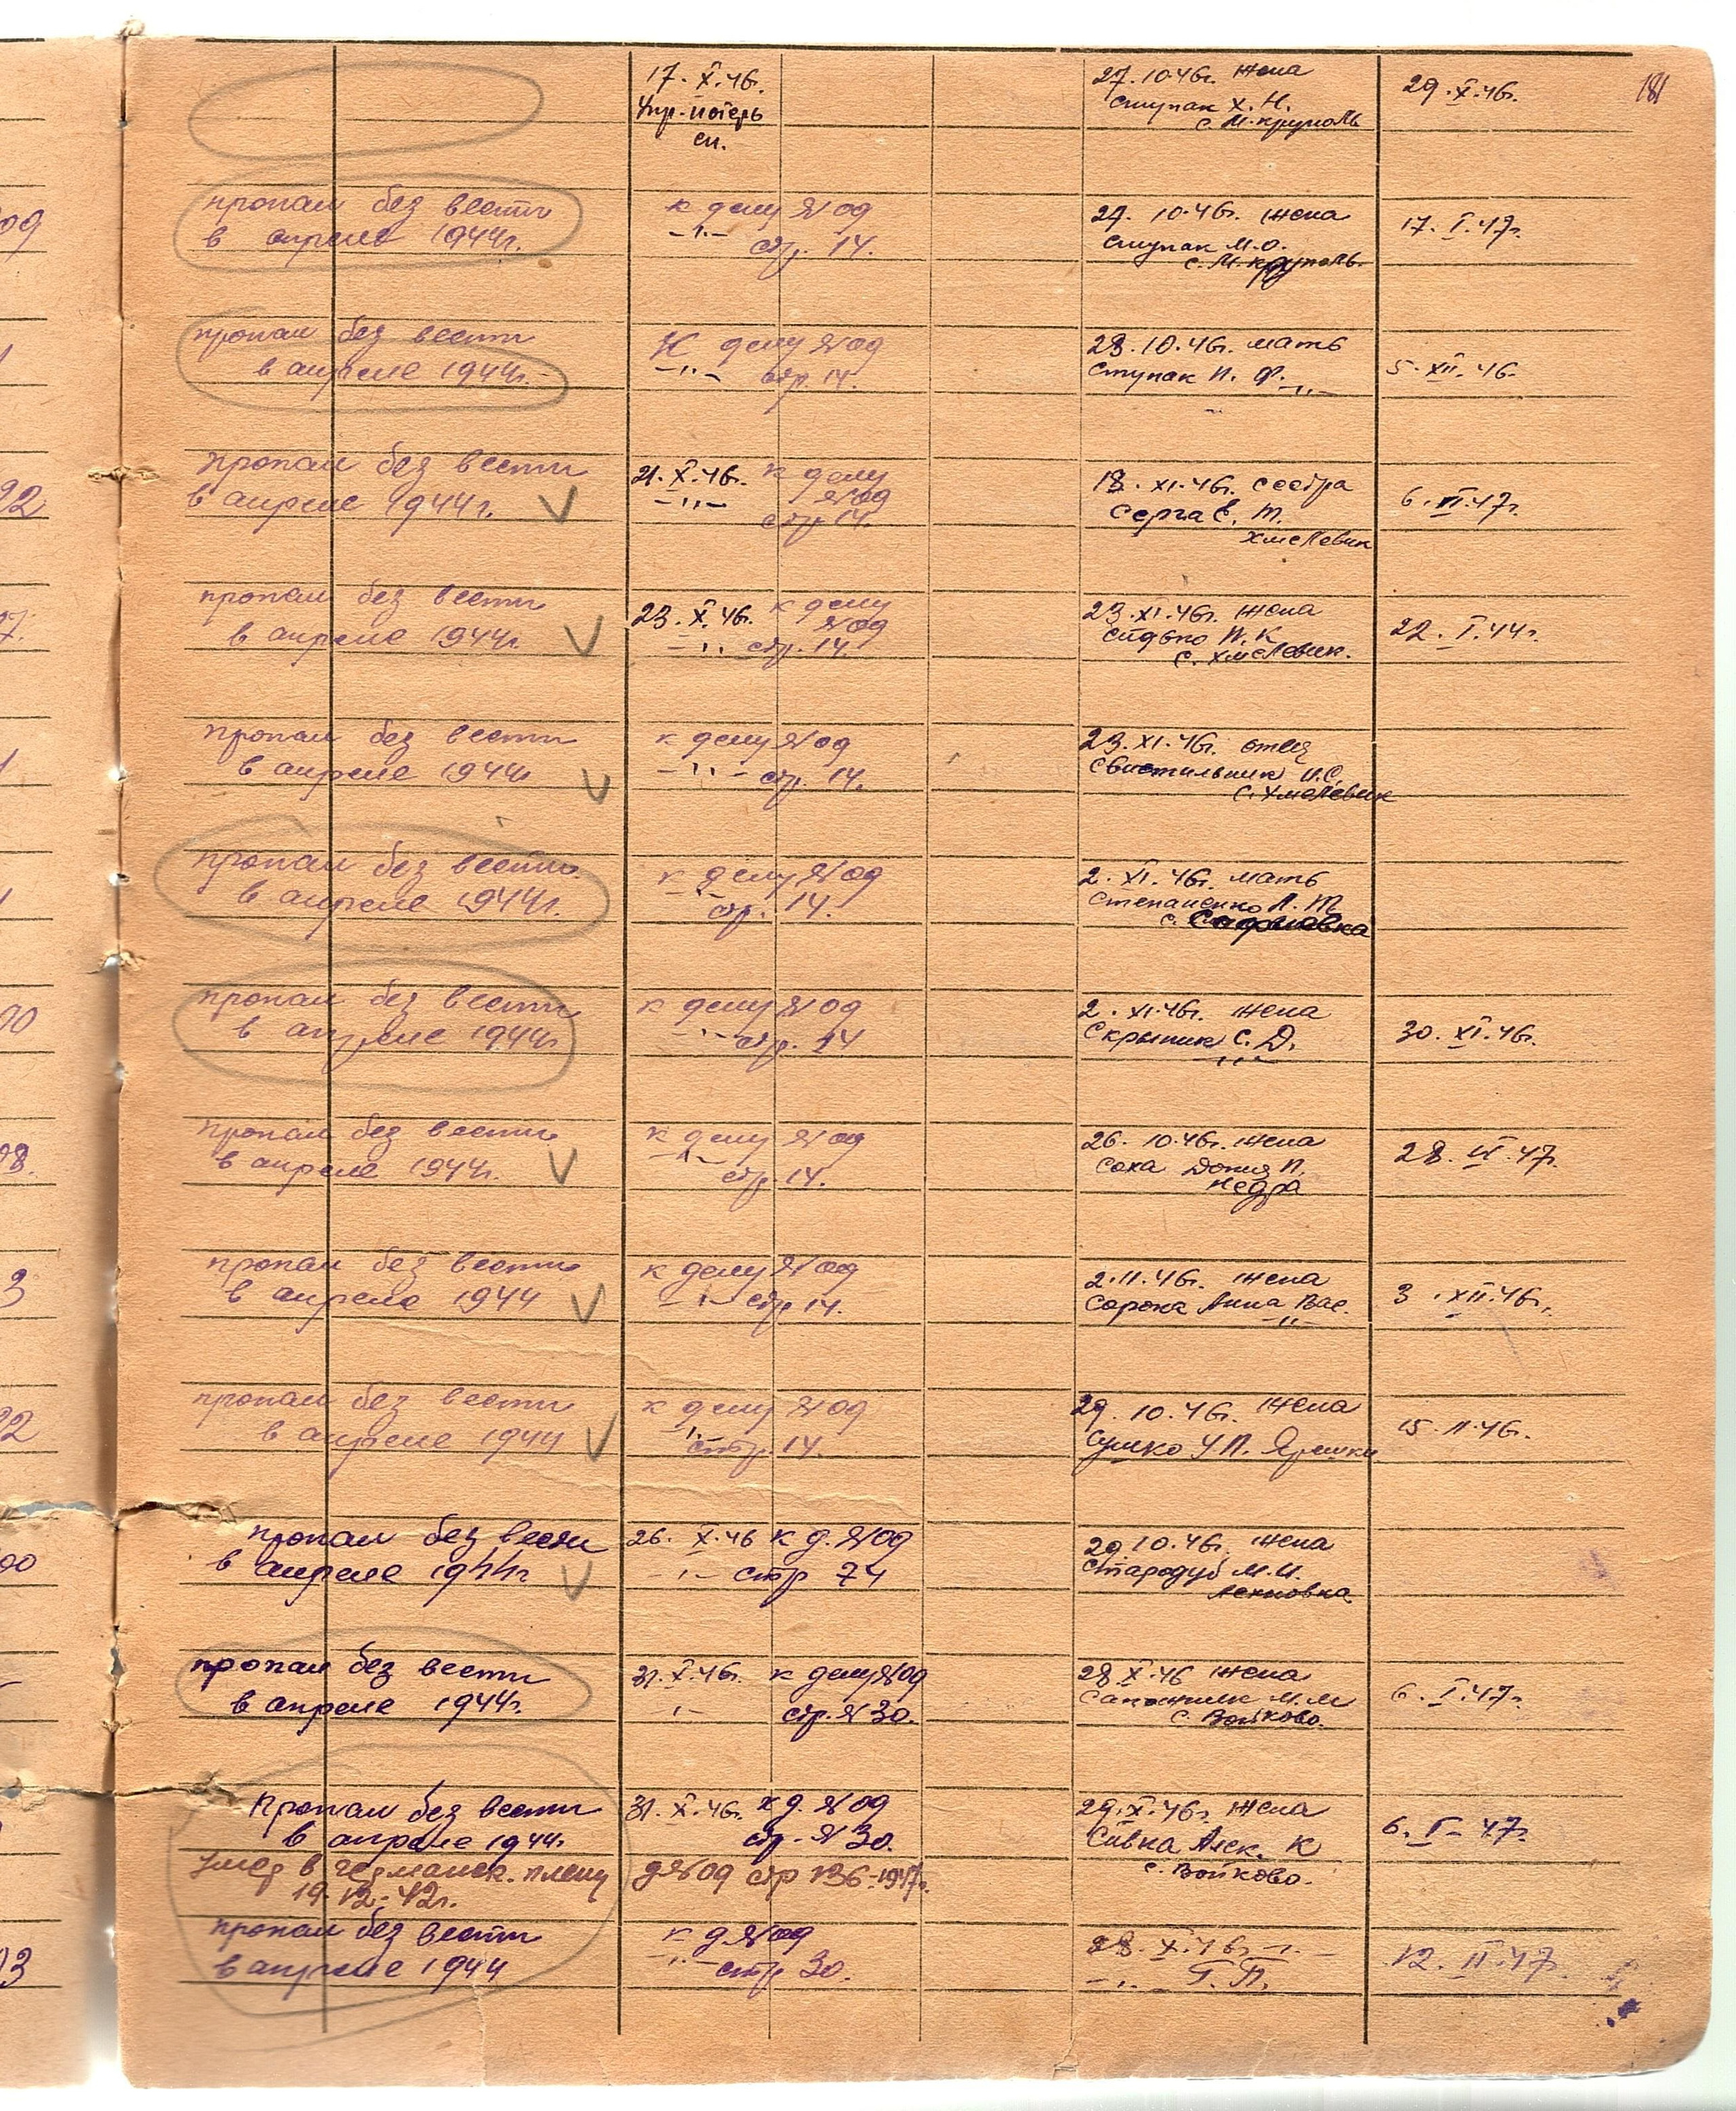 181
17. X. 46.
Упр. потерь
сп.
27. 10. 46г. жена
Ступак Х. Н.
с. М. круполь
29. X. 46г.
09
пропал без вести
в апреле 1944г.
к делу № 09
-"- стр. 14.
27. 10. 46г. жена
Ступак М. О.
с. М. круполь.
17. I. 47г.
пропал без вести
в апреле 1944г.
К делу № 09
-"- стр. 14.
28. 10. 46г. мать
Ступак П. Ф. -"-
5. XII. 46.
92
пропал без вести
в апреле 1944г. V
21. X. 46г. к делу
-"- № 09
стр 14.
18. XI. 46г. сестра
Серга Е. Т.
Хмелевик
6. 47г.
7.
пропал без вести
в апреле 1944г. V
23. X. 46г. к делу
№ 09
-"- стр. 14.
23. XI. 46г. жена
Сидько П. К
с. Хмелевик.
22. I. 44г.
пропал без вести
в апреле 1944г V
к делу № 09
-"- стр. 14.
23. XI. 46г. отец
Свистильник И. С.
с. Хмелевик
пропал без вести
в апреле 1944г.
к делу № 09
-"- стр. 14.
2. XI. 46г. мать
Степаненко Т.
с.
00
пропал без вести
в апреле 1944г.
к делу № 09
-"- стр. 14
2. XI. 46г. жена
Скрыпник С. Д.
-"-
30. XI. 46г.
08.
пропал без вести
в апреле 1944г. V
к делу № 09
-"- стр. 14.
26. 10. 46г. жена
Соха П.
Недра
28. 47г.
3
пропал без вести
в апреле 1944 V
к делу № 09
-"- стр 14.
2. 11. 46г. жена
Сорока Анна Вас.
-"-
3. XII. 46г.
22
пропал без вести
в апреле 1944 V
к делу № 09
-"- стр. 14.
29. 10. 46г. жена
Сушко У. П. Ярешки
15. 11. 46г.
00
пропал без вести
в апреле 1944г V
26. X. 46 к д. № 09
-"- стр 74
29. 10. 46г. жена
Стародуб М. И.
пропал без вести
в апреле 1944г.
31. X. 46г. к делу № 09
-"- стр. № 30.
28. X. 46 жена
М. М
с. Войково.
6. I. 47г.
Пропал без вести
в апреле 1944г.
31. X. 46г. к д. № 09
стр. № 30.
29. X. 46г. жена
Сивка Алек. К
с. Войково.
6. I - 47г.
Умер в германск. плену
19. 12. 42г.
д № 09 стр 136 - 1947г.
03
пропал без вести
в апреле 1944
к д № 09
-"- стр 30.
28. X. 46г. -"-
-"- Г. П.
12. II. 47г.